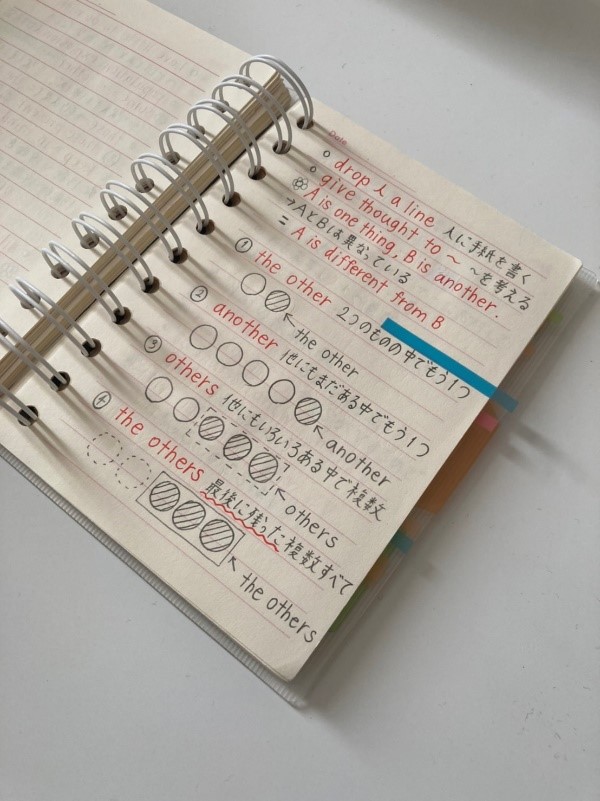 Date
○ drop 人 a line 人に手紙を書く
○ give thought to ～ ～を考える
A is one thing, B is another.
→AとBは異なっている
= A is different from B
① the other 2つのものの中でもう1つ
the other
② another 他にもまだある中でもう1つ
another
③ others 他にもいろいろある中で複数
others
④ the others 最後に残った複数すべて
the others